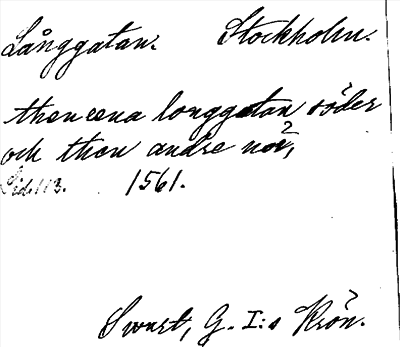 Långgatan. Stockholm.
then ena longgatan söder
och then andre nör,
Sid. 113. 1561.
Swart, G. I:s Krön.